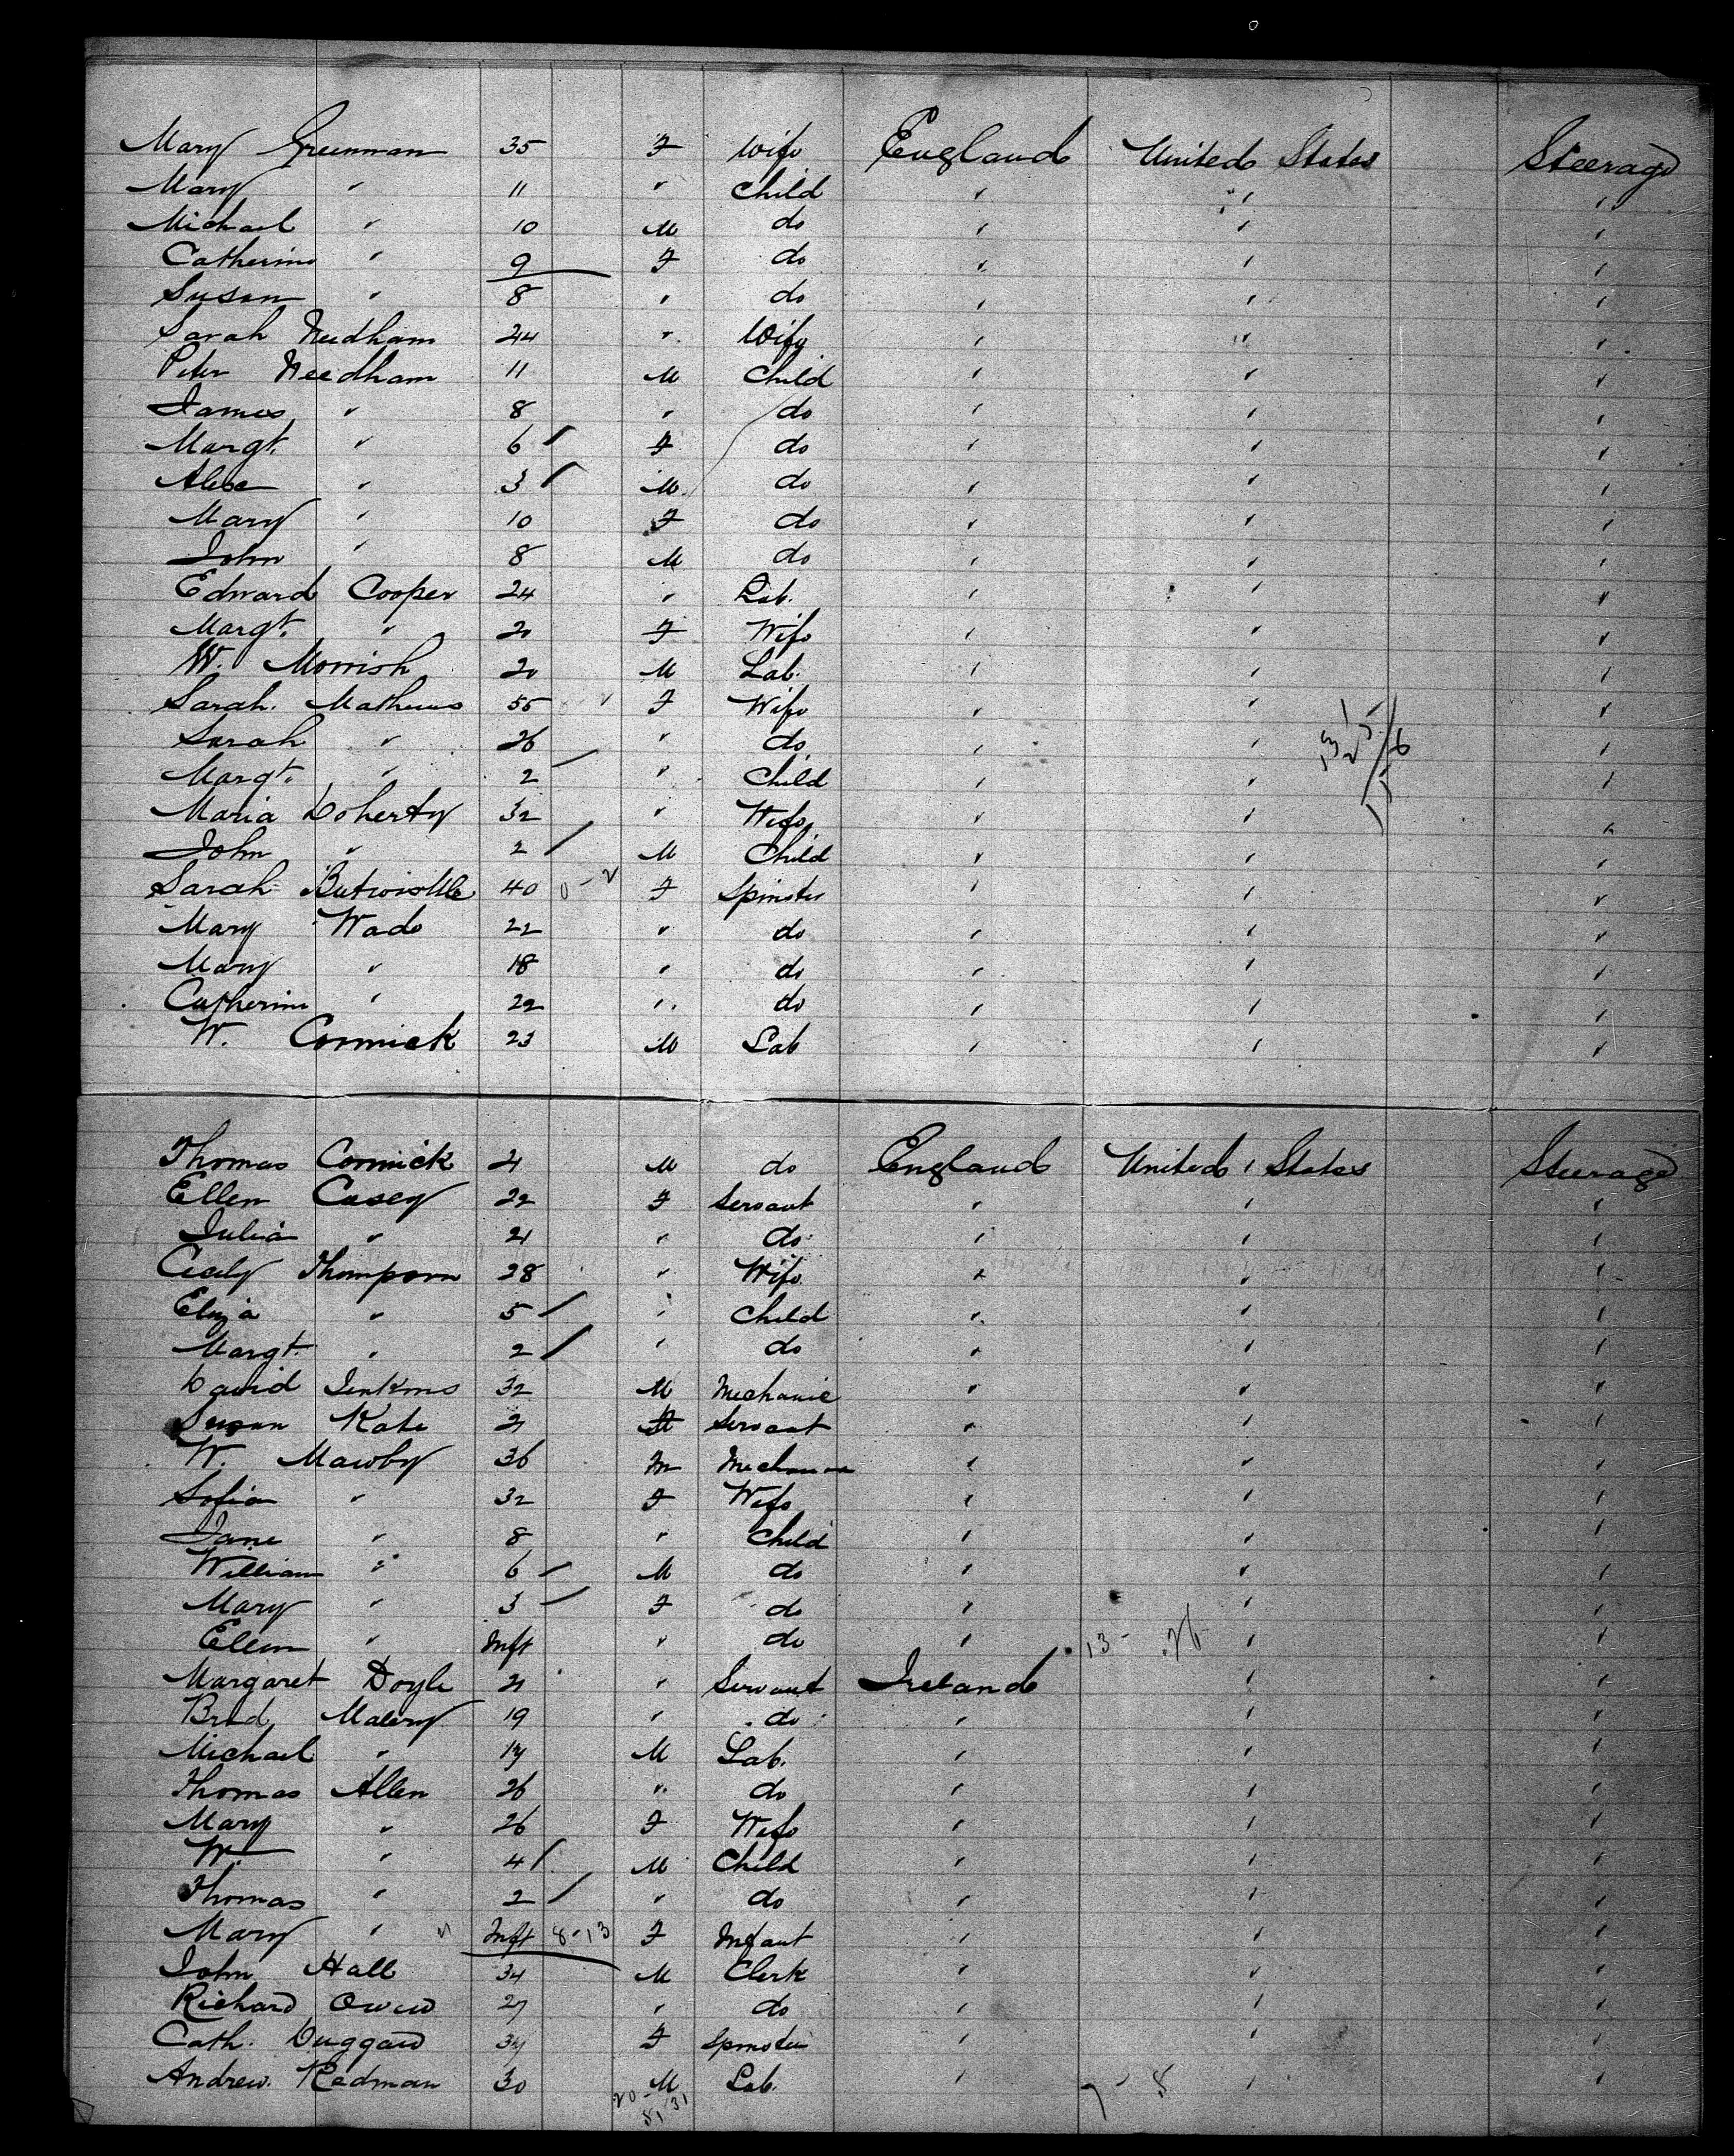 Mary Greenman 35 F Wife England United States Steerage
Mary " 11 " Child " " "
Michael " 10 M do " " "
Catherine " 9 F do " " "
Susan " 8 " do " " "
Sarah Needham 24 " Wife " " "
Peter Needham 11 M Child " " "
James " 8 " do " " "
Margt. " 6 F do " " "
" 3 M do " " "
Mary " 10 F do " " "
John " 8 M do " " "
Edward Cooper 24 " Lab. " " "
Margt. " 20 F Wife " " "
W. Morrish 20 M Lab. " " "
Sarah Mathews 55 F Wife " " "
Sarah " 26 " do " " "
Margt. " 2 " Child " " "
Maria Doherty 32 " Wife " " "
John " 2 M Child " " "
Sarah 40 F Spinster " " "
Mary Wade 22 " do " " "
Mary " 18 " do " " "
Catherine " 22 " do " " "
W. Cormick 23 M Lab " " "
Thomas Cormick 21 M do England United States Steerage
Ellen Casey 22 F Servant " " "
Julia " 21 " do " " "
Cicely Thompson 28 " Wife " " "
Eliza " 5 " Child " " "
Margt. " 2 " do " " "
David Jenkins 32 M Mechanic " " "
Susan Kate 21 F Servant " " "
W. Mawby 36 M Mechanic " " "
Sofia " 32 F Wife " " "
Jane " 8 " Child " " "
William " 6 M do " " "
Mary " 3 F do " " "
Ellen " Inft " do " " "
Margaret Doyle 21 " Servant Ireland " "
Brid Malery 19 " do " " "
Michael " 17 M Lab. " " "
Thomas Allen 26 " do " " "
Mary " 26 F Wife " " "
W. " 4 M Child " " "
Thomas " 2 " do " " "
Mary " Inft 8-13 F Infant " " "
John Hall 34 M Clerk " " "
Richard Owen 27 " do " " "
Cath. Duggan 34 F Spinster " " "
Andrew Redman 30 M Lab. " " "